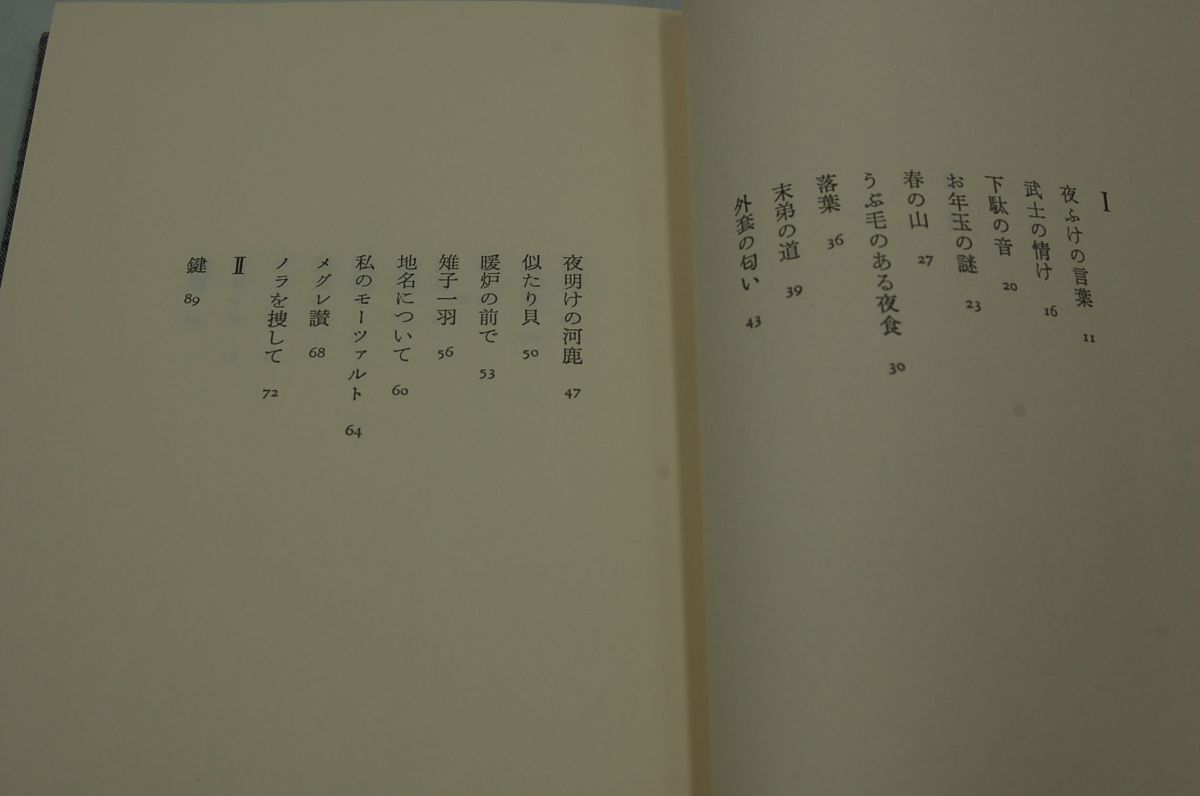 I
夜ふけの言葉 11
武士の情け 16
下駄の音 20
お年玉の謎 23
春の山 27
うぶ毛のある夜食 30
落葉 36
末弟の道 39
外套の匂い 43
夜明けの河鹿 47
似たり貝 50
暖炉の前で 53
雉子一羽 56
地名について 60
私のモーツァルト 64
メグレ讃 68
ノラを捜して 72
II
鍵 89